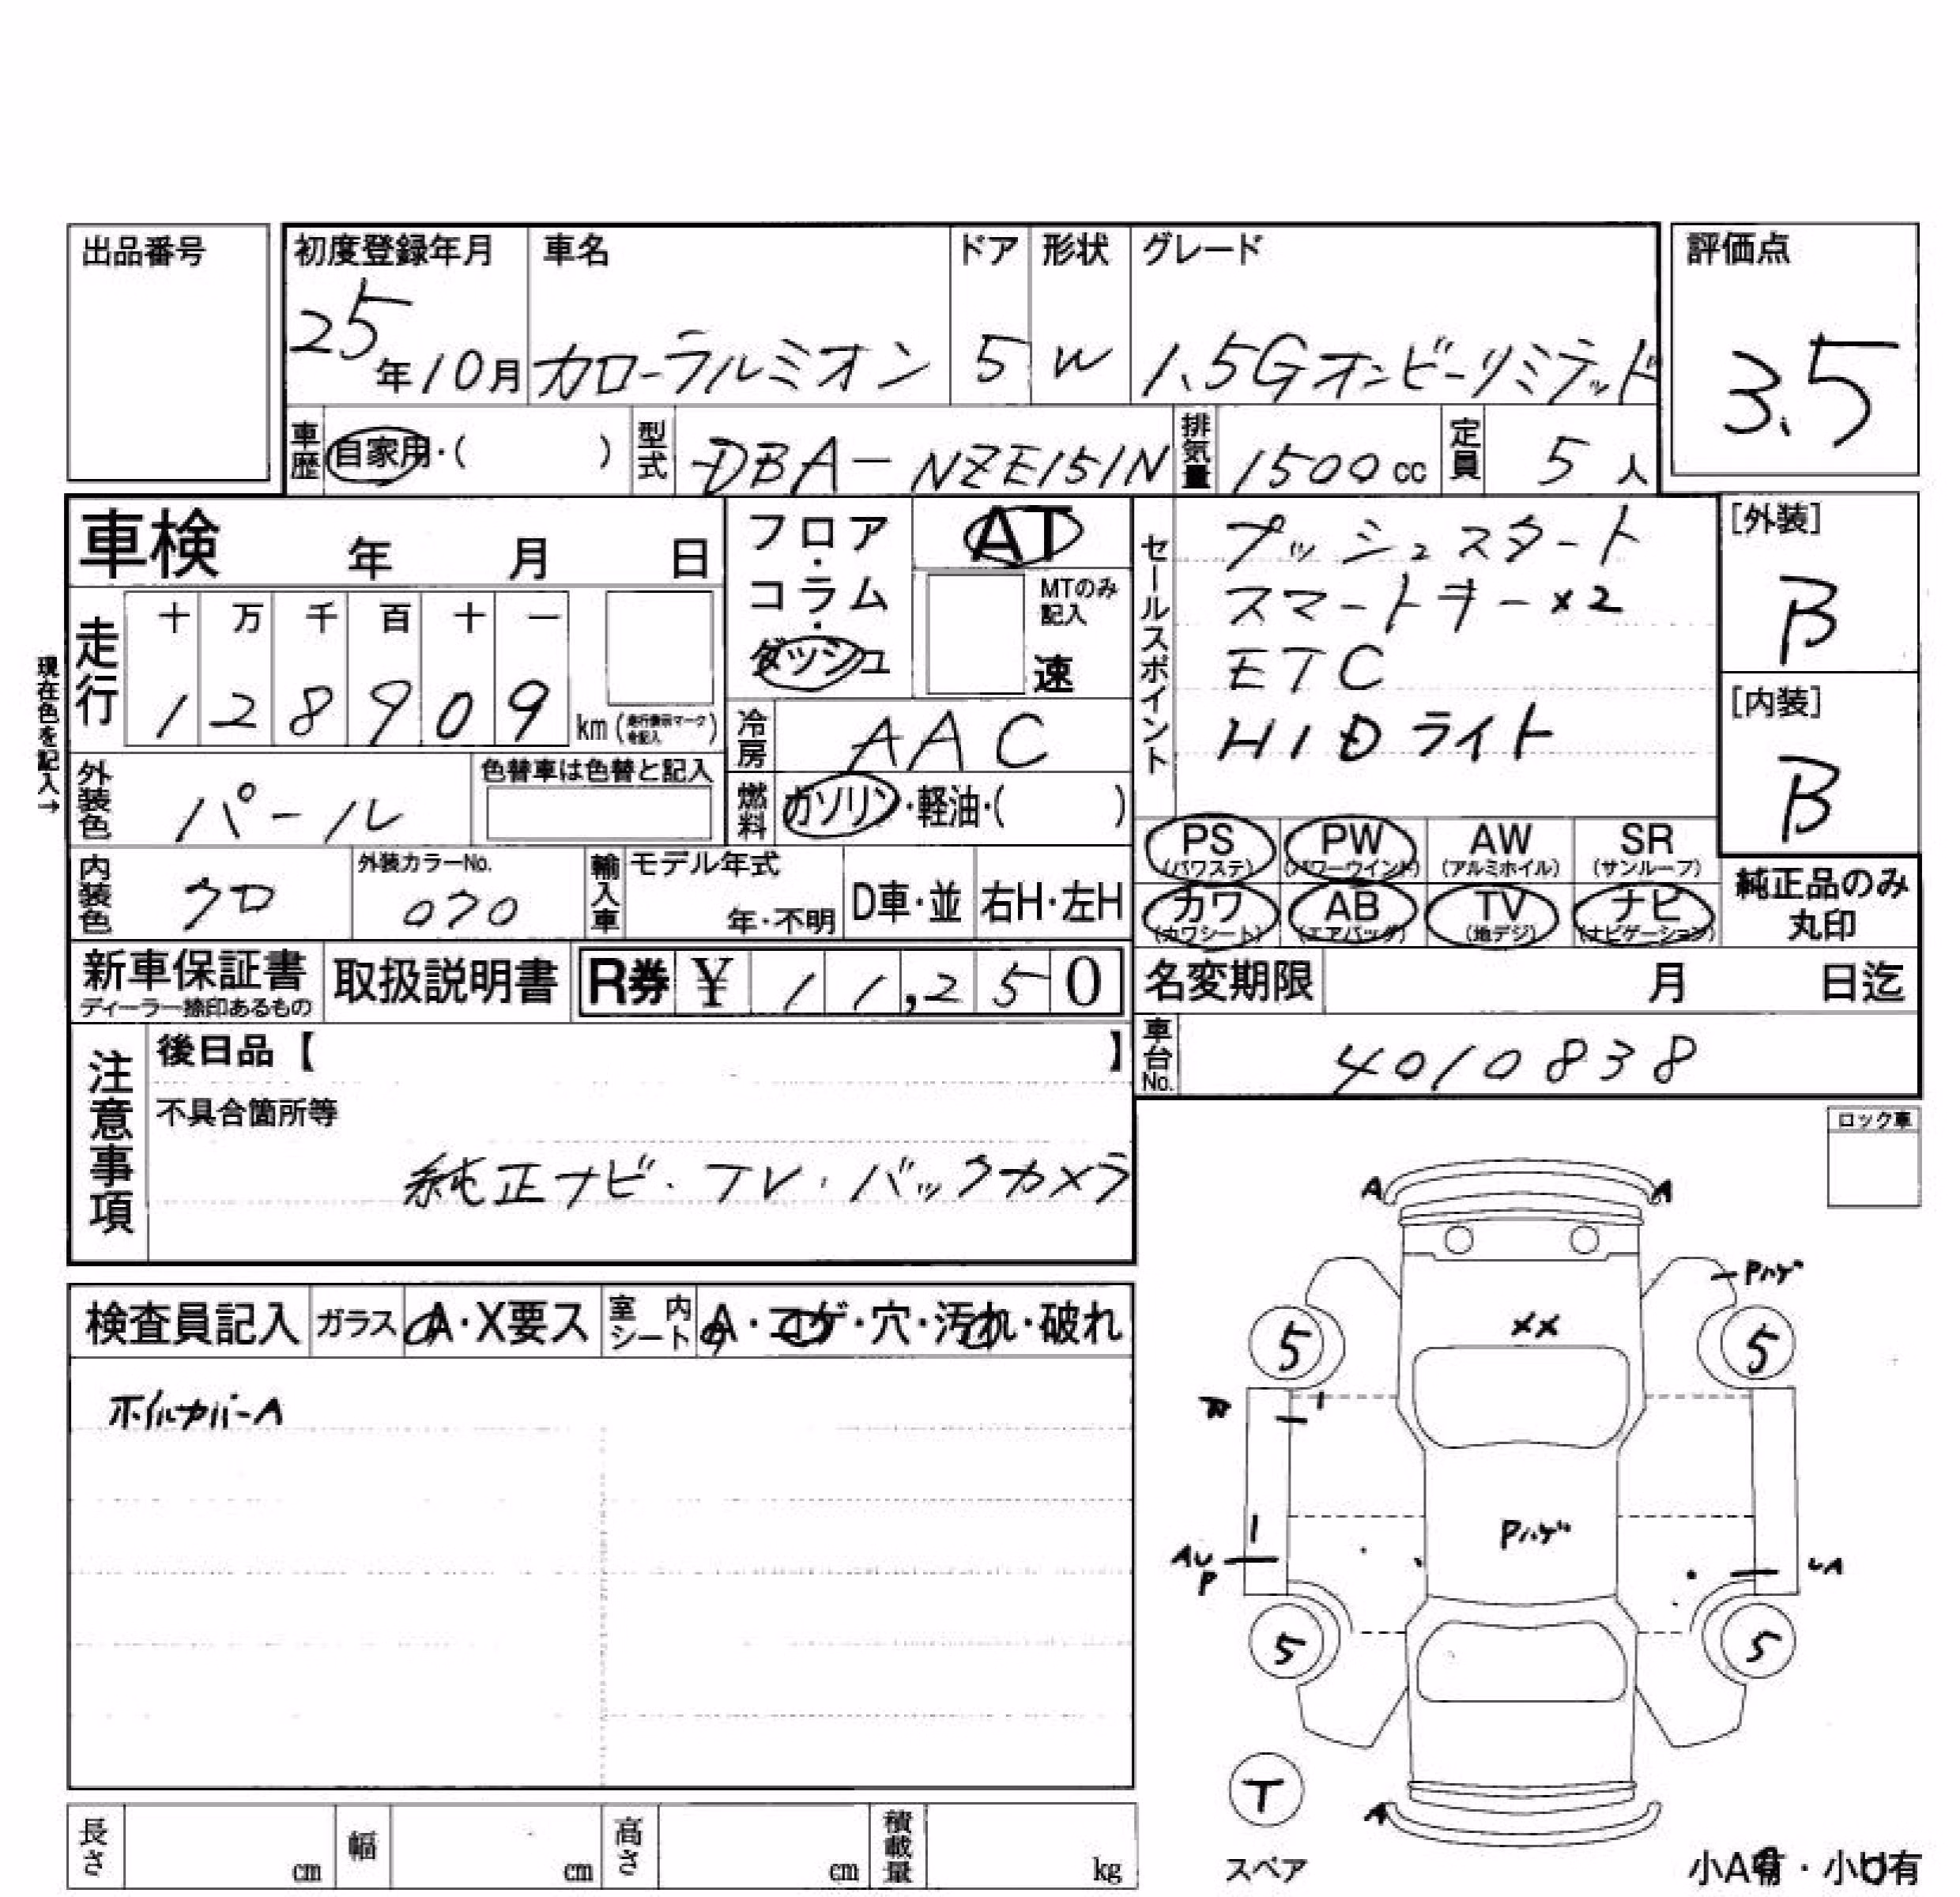 出品番号
初度登録年月 車名 ドア 形状 グレード 評価点
25年10月 カローラルミオン 5 W 1.5Gオンビーリミテッド 3.5
車歴 自家用・( ) 型式 DBA-NZE151N 排気量 1500cc 定員 5人
車検 年 月 日
フロア・コラム・ダッシュ
AT
MTのみ記入
速
セールスポイント
プッシュスタート
スマートキー×2
ETC
HIDライト
[外装]
B
[内装]
B
現在色を記入→
走行
十 万 千 百 十 一
1 2 8 9 0 9 km (走行表示マークを記入)
冷房 AAC
外装色 パール 色替車は色替と記入
燃料 ガソリン・軽油・( )
PS (パワステ) PW (パワーウインド) AW (アルミホイル) SR (サンルーフ)
カワ (カワシート) AB (エアバッグ) TV (地デジ) ナビ (ナビゲーション)
純正品のみ
丸印
内装色 クロ 外装カラーNo. 070 輸入車 モデル年式 年・不明 D車・並 右H・左H
新車保証書 ディーラー捺印あるもの 取扱説明書 R券 ¥ 11,250 名変期限 月 日迄
車台No. 4010838
注意事項
後日品【 】
不具合箇所等
純正ナビ・TV・バックカメラ
ロック車
検査員記入 ガラス A・X要ス 室内シート A・コゲ・穴・汚れ・破れ
ホイルカバーA
A A
Pハゲ
XX
5 5
Pハゲ
AU
P
UA
5 5
T
スペア
A
小A有・小U有
長さ cm 幅 cm 高さ cm 積載量 kg